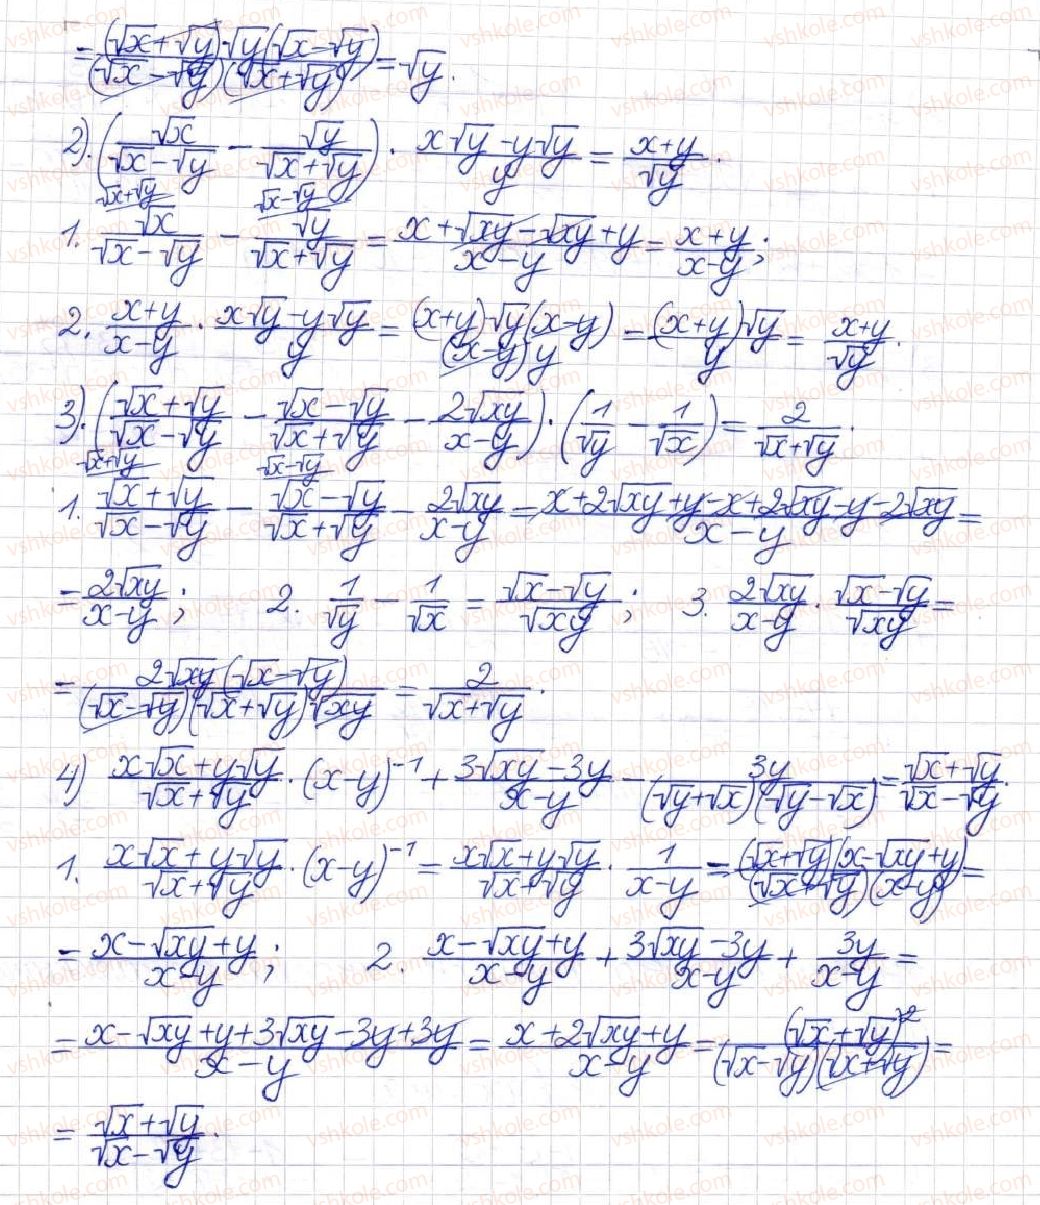 = (√x+√y)√y(√x-√y)/(√x-√y)(√x+√y) = √y.
2). (√x/(√x-√y) - √y/(√x+√y)) · (x√y-y√y)/y = (x+y)/√y.
√x+√y √x-√y
1. √x/(√x-√y) - √y/(√x+√y) = (x+√xy-√xy+y)/(x-y) = (x+y)/(x-y);
2. (x+y)/(x-y) · (x√y-y√y)/y = (x+y)√y(x-y)/(x-y)y = (x+y)√y/y = (x+y)/√y.
3). ((√x+√y)/(√x-√y) - (√x-√y)/(√x+√y) - 2√xy/(x-y)) · (1/√y - 1/√x) = 2/(√x+√y).
√x+√y √x-√y
1. (√x+√y)/(√x-√y) - (√x-√y)/(√x+√y) - 2√xy/(x-y) = (x+2√xy+y-x+2√xy-y-2√xy)/(x-y) =
= 2√xy/(x-y); 2. 1/√y - 1/√x = (√x-√y)/√xy; 3. 2√xy/(x-y) · (√x-√y)/√xy =
= 2√xy(√x-√y)/(√x-√y)(√x+√y)√xy = 2/(√x+√y).
4) (x√x+y√y)/(√x+√y) · (x-y)⁻¹ + (3√xy-3y)/(x-y) - 3y/(√y+√x)(√y-√x) = (√x+√y)/(√x-√y).
1. (x√x+y√y)/(√x+√y) · (x-y)⁻¹ = (x√x+y√y)/(√x+√y) · 1/(x-y) = (√x+√y)(x-√xy+y)/(√x+√y)(x-y) =
= (x-√xy+y)/(x-y); 2. (x-√xy+y)/(x-y) + (3√xy-3y)/(x-y) + 3y/(x-y) =
= (x-√xy+y+3√xy-3y+3y)/(x-y) = (x+2√xy+y)/(x-y) = (√x+√y)²/(√x-√y)(√x+√y) =
= (√x+√y)/(√x-√y).